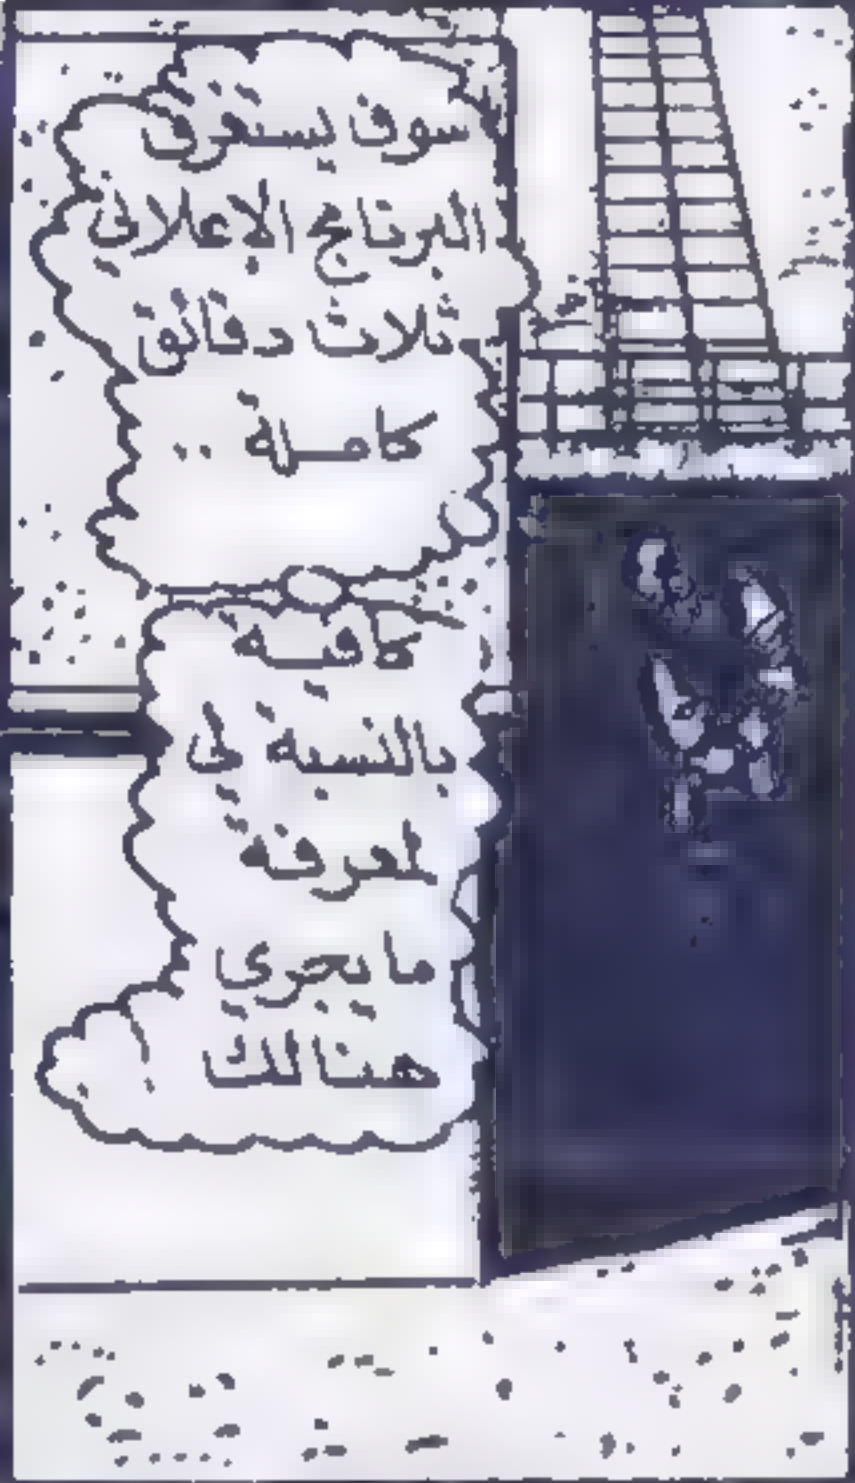 سوف يستغرق
البرنامج الإعلاني
ثلاث دقائق
كاملة ..
كافية
بالنسبة لي
لمعرفة
ما يجري
هنالك